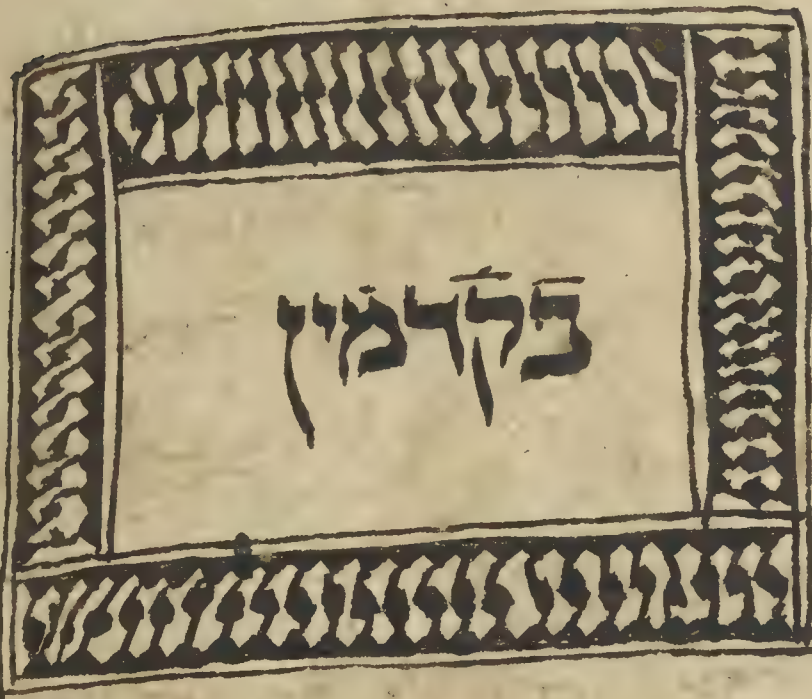 בקדמין